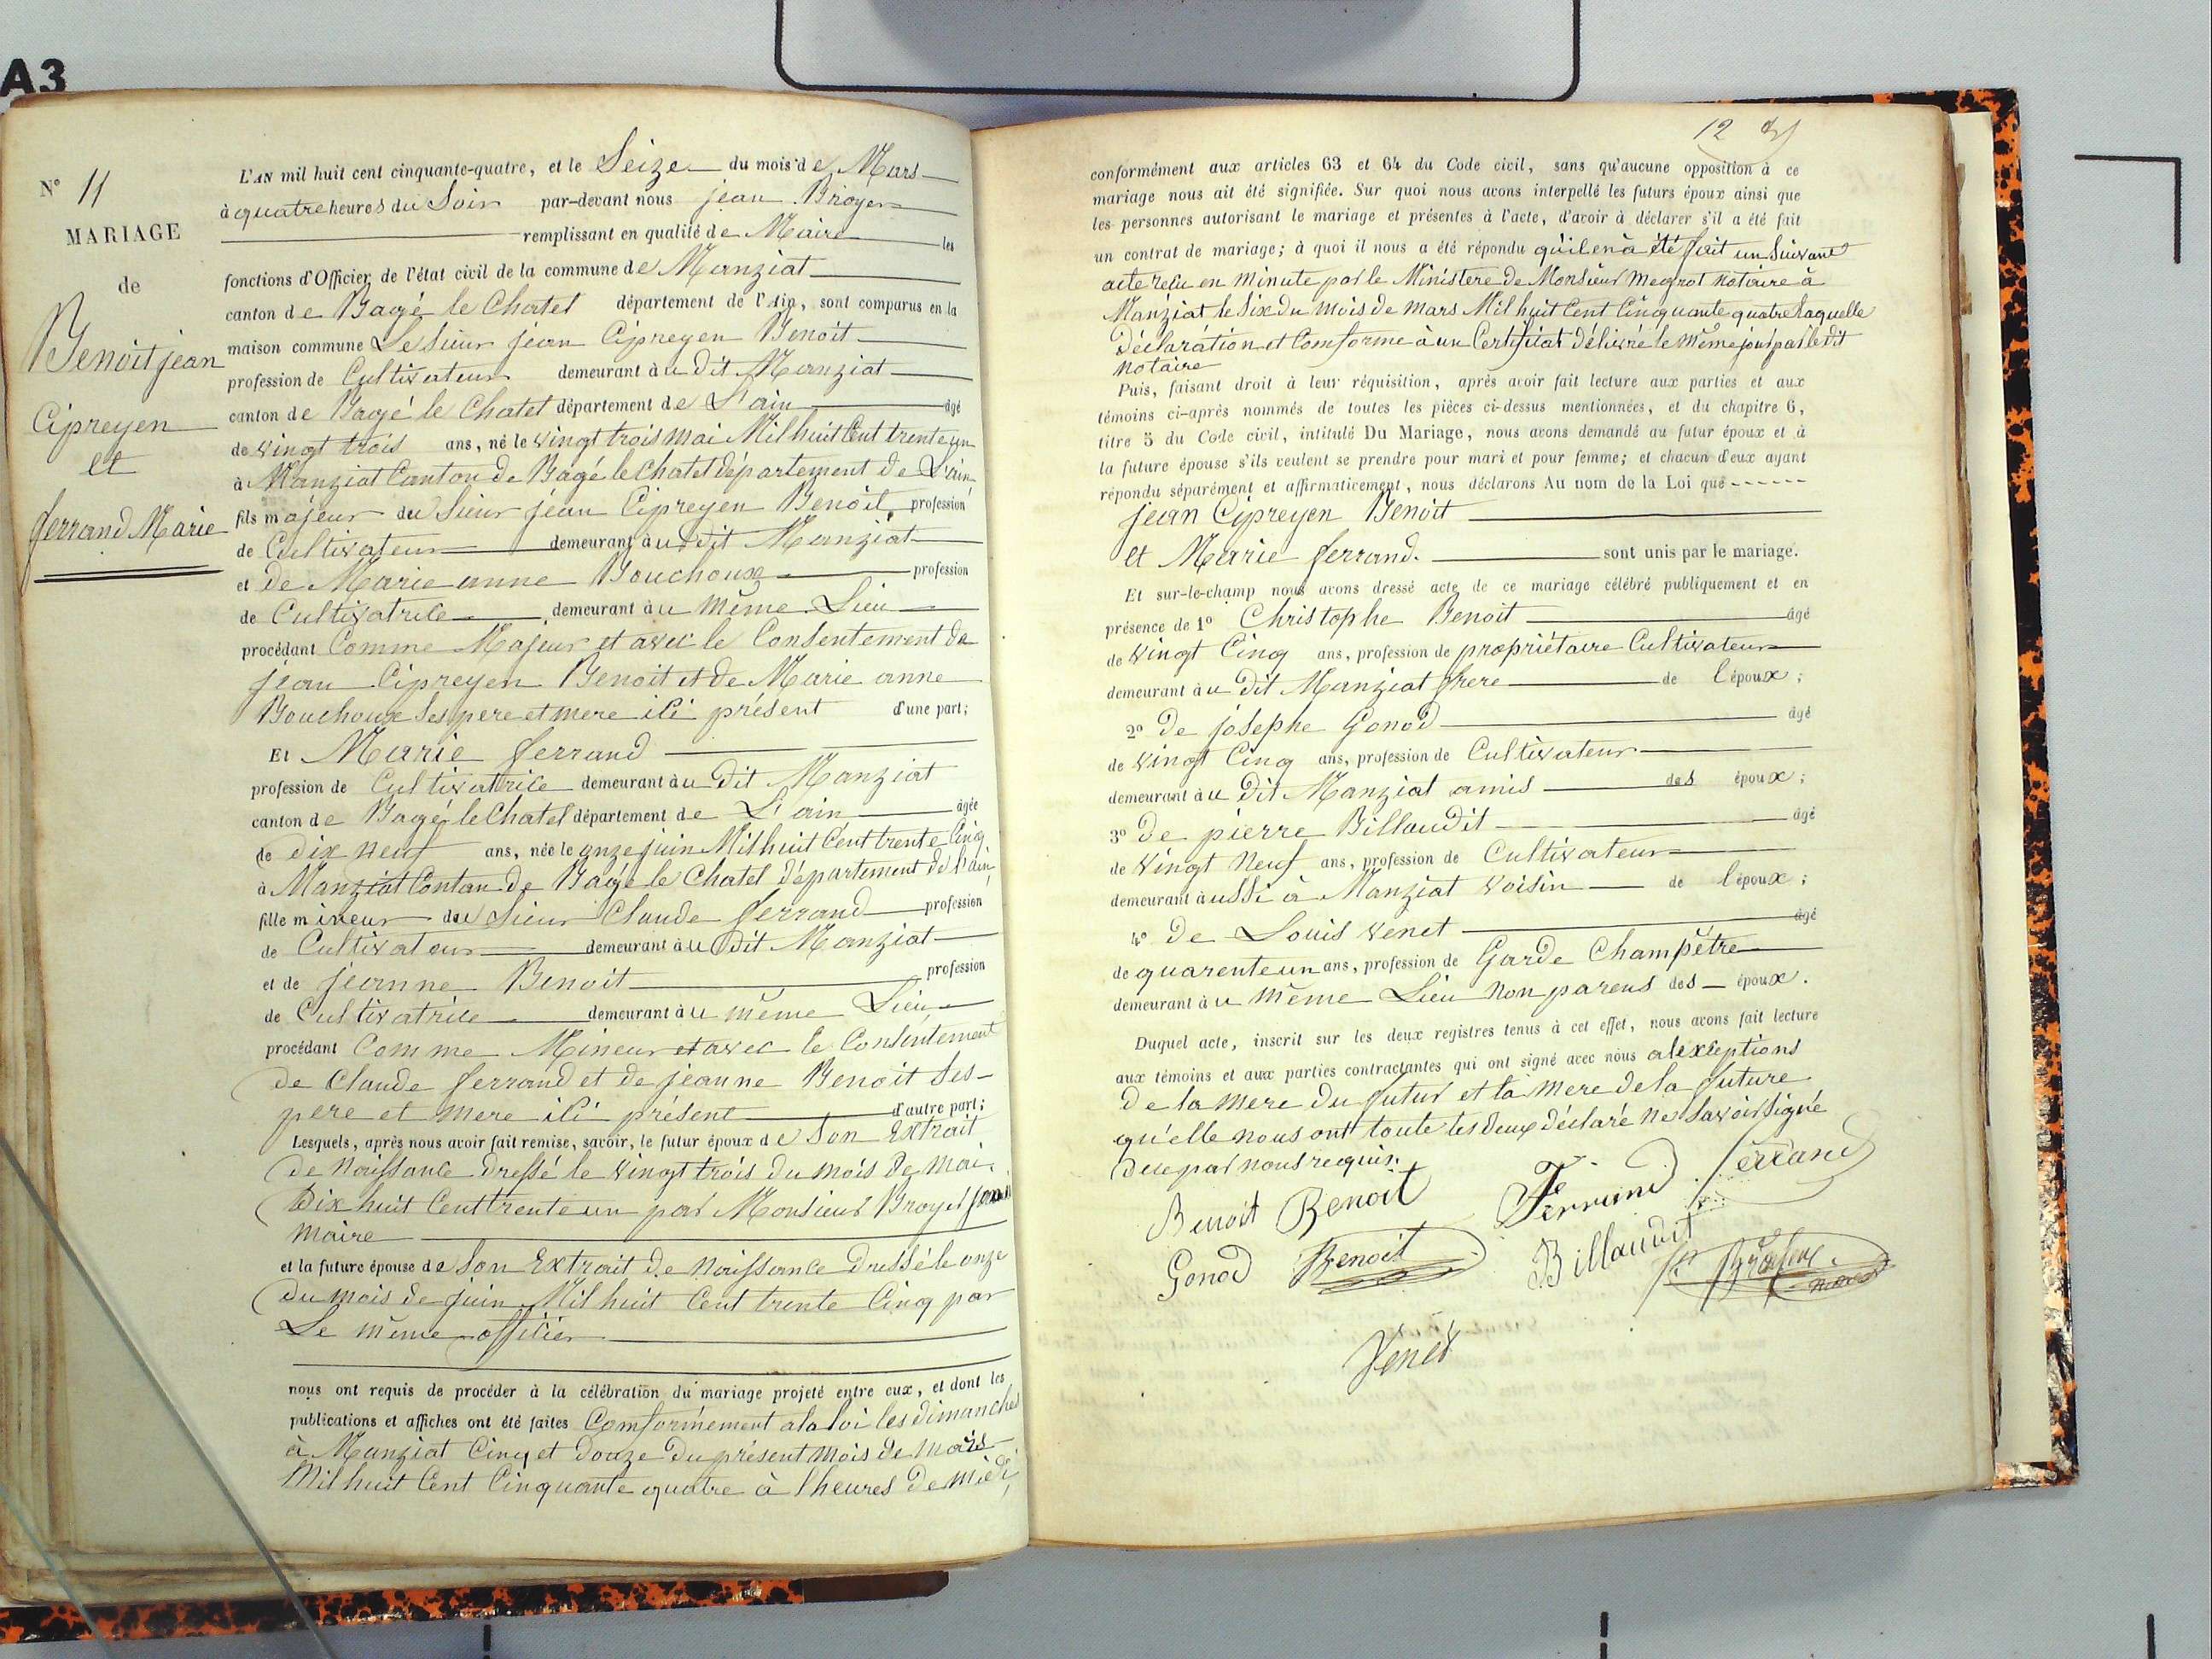 A3
N° 11
MARIAGE
de
Benoit jean
Cipreyen
et
ferrand Marie
L'AN mil huit cent cinquante-quatre, et le Seize du mois de Mars
à quatre heures du Soir par-devant nous jean Broyer
remplissant en qualité de Maire les
fonctions d'Officier de l'état civil de la commune de Manziat
canton de Bagé le Chatel département de l'Ain, sont comparus en la
maison commune Le Sieur jean Cipreyen Benoit
profession de Cultivateur demeurant au dit Manziat
canton de Bagé le Chatel département de L'ain âgé
de vingt trois ans, né le vingt trois mai Mil huit Cent trente un
à Manziat Canton de Bagé le Chatel département de L'ain
fils majeur du Sieur jean Cipreyen Benoit profession
de Cultivateur demeurant au dit Manziat
et de Marie anne Bouchoux profession
de Cultivatrice demeurant au même Lieu
procédant Comme Majeur et avec le Consentement de
jean Cipreyen Benoit et de Marie anne
Bouchoux Ses pere et mere ici présent d'une part;
Et Marie ferrand
profession de Cultivatrice demeurant au dit Manziat
canton de Bagé le Chatel département de L'ain âgée
de dix neuf ans, née le onze juin Mil huit Cent trente Cinq
à Manziat Contan de Bagé le Chatel département de l'ain
fille mineur du Sieur Claude ferrand profession
de Cultivateur demeurant au dit Manziat
et de jeanne Benoit profession
de Cultivatrice demeurant au même Lieu
procédant Comme Mineur et avec le Consentement
de Claude ferrand et de jeanne Benoit Ses
pere et mere ici présent d'autre part;
Lesquels, après nous avoir fait remise, savoir, le futur époux de Son Extrait
de Naissance dressé le vingt trois du mois de mai
Dix huit Cent trente un par Monsieur Broyer
maire
et la future épouse de Son Extrait de Naissance dressé le onze
du mois de juin Mil huit Cent trente Cinq par
Le même officier
nous ont requis de procéder à la célébration du mariage projeté entre eux, et dont les
publications et affiches ont été faites Comformément ala loi les dimanches
à Manziat Cinq et douze du présent mois de mars
Mil huit Cent Cinquante quatre à lheures de midi,
12
conformément aux articles 63 et 64 du Code civil, sans qu'aucune opposition à ce
mariage nous ait été signifiée. Sur quoi nous avons interpellé les futurs époux ainsi que
les personnes autorisant le mariage et présentes à l'acte, d'avoir à déclarer s'il a été fait
un contrat de mariage; à quoi il nous a été répondu qu'il en à été fait un Suivant
acte reçu en minute par le Ministere de Monsieur Megrot notaire à
Manziat le Six du mois de mars Mil huit Cent Cinquante quatre Laquelle
Déclaration et Comforme à un Certificat délivré le même jour par le dit
notaire
Puis, faisant droit à leur réquisition, après avoir fait lecture aux parties et aux
témoins ci-après nommés de toutes les pièces ci-dessus mentionnées, et du chapitre 6,
titre 5 du Code civil, intitulé Du Mariage, nous avons demandé au futur époux et à
la future épouse s'ils veulent se prendre pour mari et pour femme; et chacun d'eux ayant
répondu séparément et affirmativement, nous déclarons Au nom de la Loi que ------
jean Cipreyen Benoit
et Marie ferrand. sont unis par le mariage.
Et sur-le-champ nous avons dressé acte de ce mariage célébré publiquement et en
présence de 1° Christophe Benoit âgé
de vingt Cinq ans, profession de propriétaire Cultivateur
demeurant au dit Manziat frere de l'époux;
2° de josephe Gonod âgé
de vingt Cinq ans, profession de Cultivateur
demeurant au dit Manziat amis des époux;
3° de pierre Billaudit âgé
de vingt Neuf ans, profession de Cultivateur
demeurant aussi à Manziat voisin de l'époux;
4° de Louis Venet âgé
de quarente un ans, profession de Garde Champêtre
demeurant au même Lieu non parens des époux.
Duquel acte, inscrit sur les deux registres tenus à cet effet, nous avons fait lecture
aux témoins et aux parties contractantes qui ont signé avec nous alexceptions
de la mere du futur et la mere de la future
qu'elle nous ont toute les deux déclaré ne Savoir Signé
de ce par nous requis.
Benoit Benoit Ferrand ferrand
Gonod Benoit Billaudit
Venet